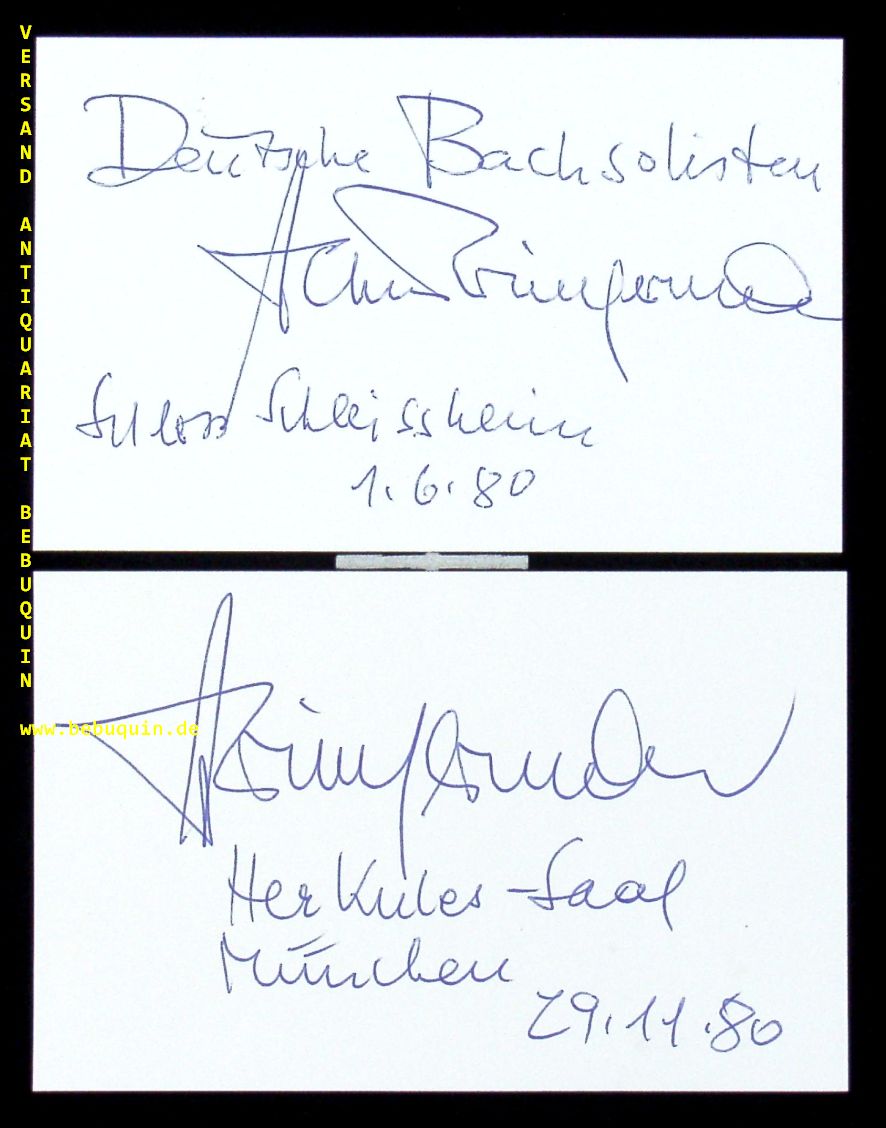 VERSAND ANTIQUARIAT BEBUQUIN
www.bebuquin.de
Deutsche Bachsolisten
Schloss Schleissheim
1.6.80
Winschermann
Herkules-Saal
München
29.11.80